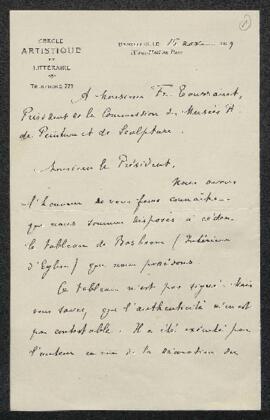 CERCLE
ARTISTIQUE
ET
LITTÉRAIRE
TÉLÉPHONE 229
BRUXELLES, LE 15 1889
1
A Monsieur Fr. Toussaint,
Président de la Commission du Musée R.
de Peinture et de Sculpture.
Monsieur le Président,
Nous avons
l'honneur de vous faire connaître
que nous sommes disposés à céder
le tableau de Bosboom (Intérieur
d'Eglise) que nous possédons.
Ce tableau n'est pas signé. Mais
vous savez, que l'authenticité n'en est
pas contestable. Il a été exécuté par
l'auteur en vue de la décoration du